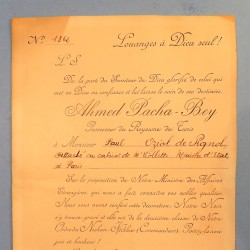 No. 1260
Louanges à Dieu seul!
L.S.
De la part du Serviteur du Dieu glorifié de celui qui
met en Dieu sa confiance et lui laisse le soin de ses destinées,
Ahmed Pacha-Bey
Possesseur du Royaume de Tunis
à Monsieur Paul Oziol de Pignol
attaché au cabinet de Mr Collette Ministre d'Etat
à Paris
Sur la proposition de Notre Ministre des Affaires
Etrangères, qui nous a fait connaître vos nobles qualités
Nous vous avons conféré cette décoration, Notre Nom
y est gravé et elle est de la deuxième classe de Notre
Ordre du Nichan Iftikhar (Commandeur) Portez-la avec
joie et bonheur!